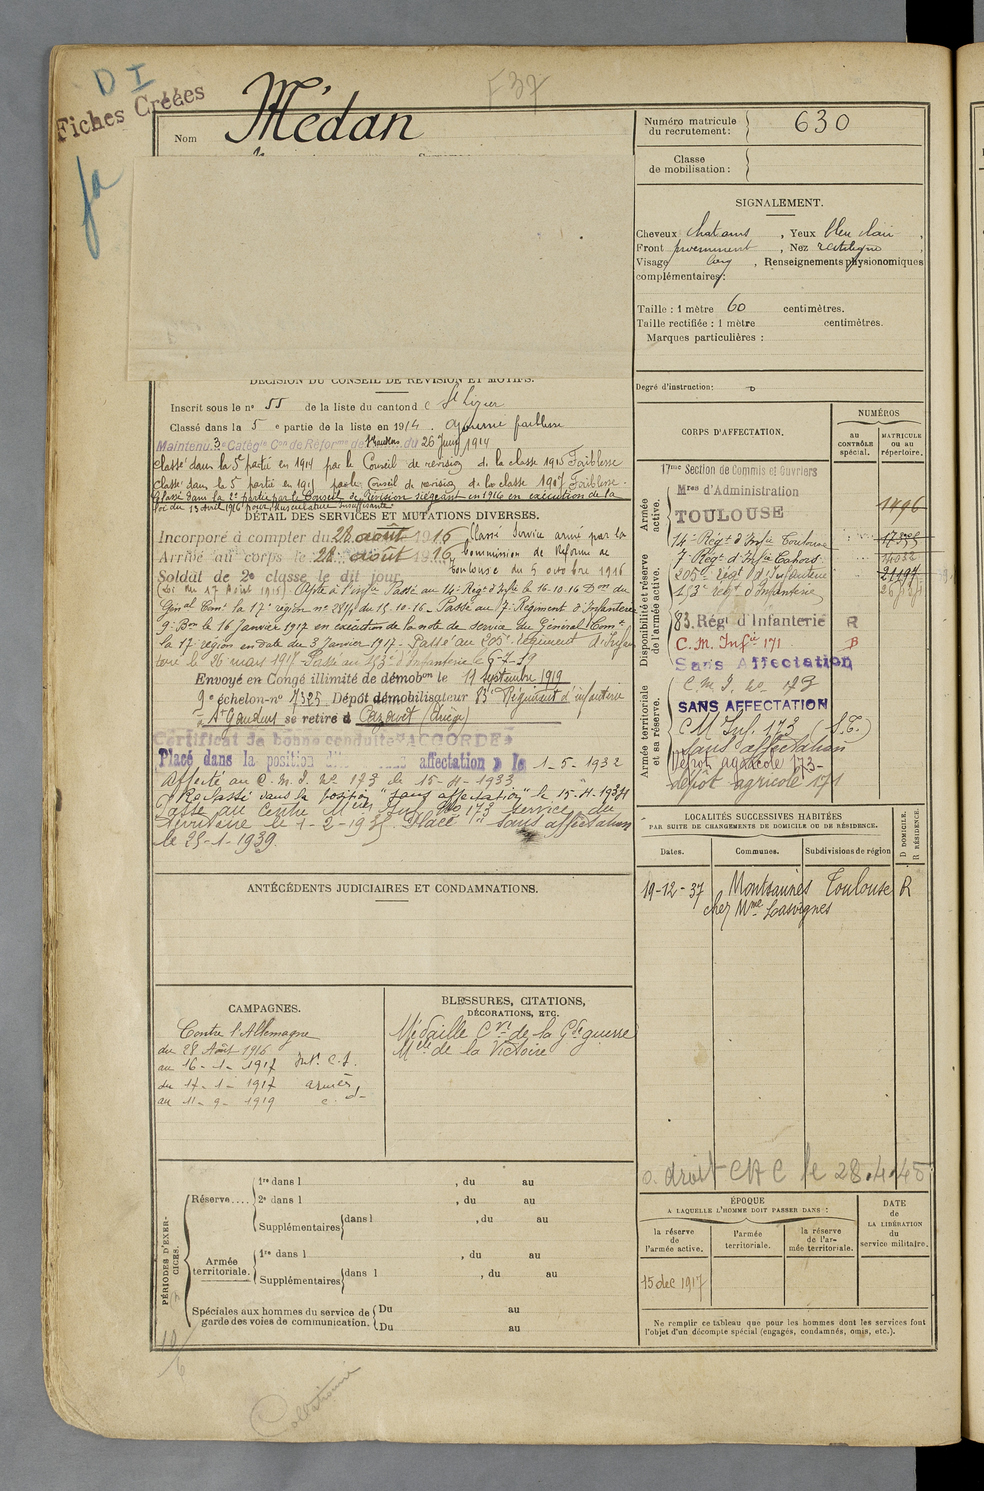 D I
Fiches Créées
fa
F 37
Nom Médan
Numéro matricule du recrutement : 630
Classe de mobilisation :
SIGNALEMENT.
Cheveux chatains , Yeux bleu clair ,
Front proeminent , Nez rectiligne ,
Visage long , Renseignements physionomiques
complémentaires :
Taille : 1 mètre 60 centimètres.
Taille rectifiée : 1 mètre centimètres.
Marques particulières :
Degré d'instruction :
DÉCISION DU CONSEIL DE RÉVISION ET MOTIFS.
Inscrit sous le n° 55 de la liste du canton d e St Lizier
Classé dans la 5e partie de la liste en 1914. ajourné faiblesse
Maintenu 3e Catégie Con de Réforme de du 26 Juin 1914
Classé dans la 5e partie en 1914 par le Conseil de revision de la classe 1915 Faiblesse
Classé dans la 5 partie en 1915 par le Conseil de revision de la classe 1917 Faiblesse.
Classé dans la 2e partie par le Conseil de Révision siégeant en 1916 en exécution de la
loi du 13 avril 1916 pour Musculature insuffisante
DÉTAIL DES SERVICES ET MUTATIONS DIVERSES.
Incorporé à compter du 28 août 1916 Classé Service armé par la
Arrivé au corps le 28 août 1916 Commission de Réforme de
Soldat de 2e classe le dit jour Toulouse du 5 octobre 1916
(Loi du 17 Août 1915). Apte à l'infie Passé au 14e Régt d'Infie le 16.10.16 Don du
Génal Comt la 17e région n° 2814 du 15.10.16 - Passé au 7e Régiment d'Infanterie
9e Bon le 16 Janvier 1917 en exécution de la note de service du Général Comt
la 17e région en date du 3 Janvier 1917 - Passé au 205e régiment d'Infan
terie le 26 mars 1917 Passé au 153e d'Infanterie le 6-7-19
Envoyé en Congé illimité de démobon le 11 septembre 1919
9e échelon-n° 7325 Dépôt démobilisateur 83e Régiment d'infanterie
à St Gaudens se retire à Cazavet (Ariège)
Certificat de bonne conduite "ACCORDÉ"
Placé dans la position d'it sans affectation » le 1-5-1932
Affecté au C.M.I. N° 173 le 15-4-1933
Reclassé dans la position "sans affectation" le 15.4.1934
Passé au Centre Mre Inf. N° 173 service du
Territoire le 1-2-1935. Placé "sans affectation
le 25-1-1939.
CORPS D'AFFECTATION.
NUMÉROS
AU CONTRÔLE spécial.
MATRICULE ou au répertoire.
Armée active.
17me Section de Commis et Ouvriers
Mres d'Administration
TOULOUSE 1496
Disponibilité et réserve de l'armée active.
14e Régt d'Infie Toulouse
7e Régt d'Infie Cahors
205e régt d'Infanterie 21197
153e régt d'Infanterie
83. Régt d'Infanterie R
C. M. Infie 171 B
Sans Affectation
Armée territoriale et sa réserve.
C.M.I. n° 173
SANS AFFECTATION
C M Inf. 173 (S.T.)
Sans affectation
Dépôt agricole 173
Dépôt agricole 171
LOCALITÉS SUCCESSIVES HABITÉES
PAR SUITE DE CHANGEMENTS DE DOMICILE OU DE RÉSIDENCE.
D DOMICILE. R RÉSIDENCE.
Dates. Communes. Subdivisions de région
19-12-37 Montsaunès Toulouse R
chez Mme Lasvignes
ANTÉCÉDENTS JUDICIAIRES ET CONDAMNATIONS.
CAMPAGNES.
Contre l'Allemagne
du 28 Août 1916
au 16-1-1917 Intr. C.S.
du 17-1-1917 armées
au 11-9-1919 c. d.
BLESSURES, CITATIONS,
DÉCORATIONS, ETC.
Médaille Cve de la Gde guerre
Mlle de la Victoire
a droit CAC le 28.4.45
PÉRIODES D'EXERCICES.
Réserve....
1re dans l , du au
2e dans l , du au
Supplémentaires dans l , du au
Armée territoriale.
1re dans l , du au
Supplémentaires dans l , du au
Spéciales aux hommes du service de garde des voies de communication.
Du au
Du au
ÉPOQUE
A LAQUELLE L'HOMME DOIT PASSER DANS :
la réserve de l'armée active.
l'armée territoriale.
la réserve de l'armée territoriale.
DATE de LA LIBÉRATION du service militaire.
15 dec 1917
Ne remplir ce tableau que pour les hommes dont les services font
l'objet d'un décompte spécial (engagés, condamnés, omis, etc.).
10/6
Collationné